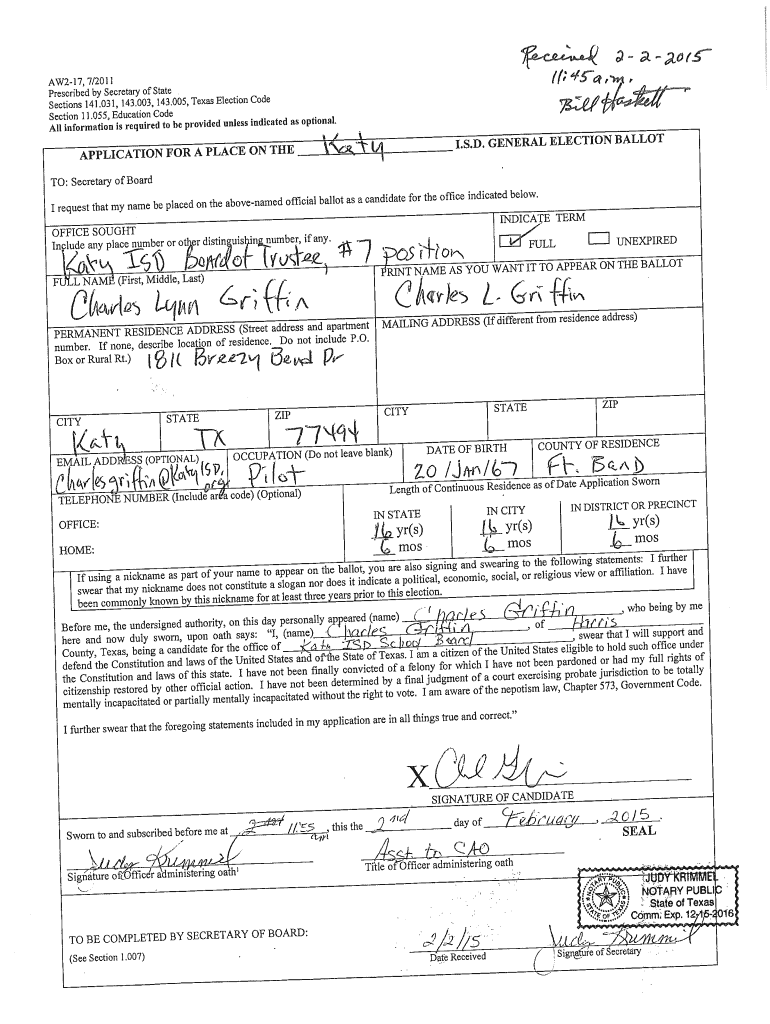 Received 2-2-2015
11:45 a.m.
Bill Haskett
AW2-17, 7/2011
Prescribed by Secretary of State
Sections 141.031, 143.003, 143.005, Texas Election Code
Section 11.055, Education Code
All information is required to be provided unless indicated as optional.
APPLICATION FOR A PLACE ON THE Katy I.S.D. GENERAL ELECTION BALLOT
TO: Secretary of Board
I request that my name be placed on the above-named official ballot as a candidate for the office indicated below.
OFFICE SOUGHT
Include any place number or other distinguishing number, if any.
Katy ISD Board of Trustee, #7 position
INDICATE TERM
FULL UNEXPIRED
FULL NAME (First, Middle, Last)
Charles Lynn Griffin
PRINT NAME AS YOU WANT IT TO APPEAR ON THE BALLOT
Charles L. Griffin
PERMANENT RESIDENCE ADDRESS (Street address and apartment
number. If none, describe location of residence. Do not include P.O.
Box or Rural Rt.) 1811 Breezy Bend Dr
MAILING ADDRESS (If different from residence address)
CITY STATE ZIP
Katy TX 77494
CITY STATE ZIP
EMAIL ADDRESS (OPTIONAL)
Charlesgriffin@KatyISD.
org
OCCUPATION (Do not leave blank)
Pilot
DATE OF BIRTH
20/JAN/67
COUNTY OF RESIDENCE
Ft. Bend
TELEPHONE NUMBER (Include area code) (Optional)
OFFICE:
HOME:
Length of Continuous Residence as of Date Application Sworn
IN STATE IN CITY IN DISTRICT OR PRECINCT
16 yr(s) 16 yr(s) 16 yr(s)
6 mos 6 mos 6 mos
If using a nickname as part of your name to appear on the ballot, you are also signing and swearing to the following statements: I further
swear that my nickname does not constitute a slogan nor does it indicate a political, economic, social, or religious view or affiliation. I have
been commonly known by this nickname for at least three years prior to this election.
Before me, the undersigned authority, on this day personally appeared (name) Charles Griffin, who being by me
here and now duly sworn, upon oath says: "I, (name) Charles Griffin, of Harris
County, Texas, being a candidate for the office of Katy ISD School Board, swear that I will support and
defend the Constitution and laws of the United States and of the State of Texas. I am a citizen of the United States eligible to hold such office under
the Constitution and laws of this state. I have not been finally convicted of a felony for which I have not been pardoned or had my full rights of
citizenship restored by other official action. I have not been determined by a final judgment of a court exercising probate jurisdiction to be totally
mentally incapacitated or partially mentally incapacitated without the right to vote. I am aware of the nepotism law, Chapter 573, Government Code.
I further swear that the foregoing statements included in my application are in all things true and correct."
X
SIGNATURE OF CANDIDATE
Sworn to and subscribed before me at 11:55 am, this the 2nd day of February, 2015.
SEAL
Judy Krimmel
Signature of Officer administering oath
Asst to CAO
Title of Officer administering oath
NOTARY PUBLIC
STATE OF TEXAS
JUDY KRIMMEL
NOTARY PUBLIC
State of Texas
Comm. Exp. 12-15-2016
TO BE COMPLETED BY SECRETARY OF BOARD:
(See Section 1.007)
2/2/15
Date Received
Judy Krimmel
Signature of Secretary